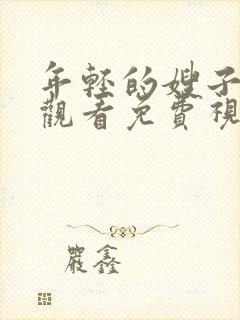 年轻的嫂子
觀看免費視
嚴鑫